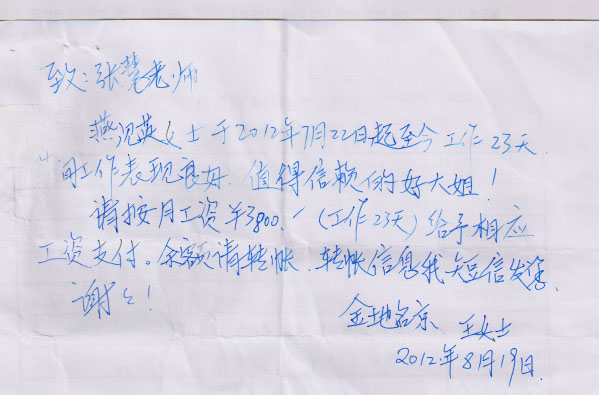 致:张慧老师
燕况英女士于2012年7月22日起至今工作23天.
间工作表现良好.值得信赖的好大姐!
请按月工资¥3800.-(工作23天)给予相应
工资支付。余额请转帐.转帐信息我短信发您.
谢谢!
金地名京 王女士
2012.年8月19日.